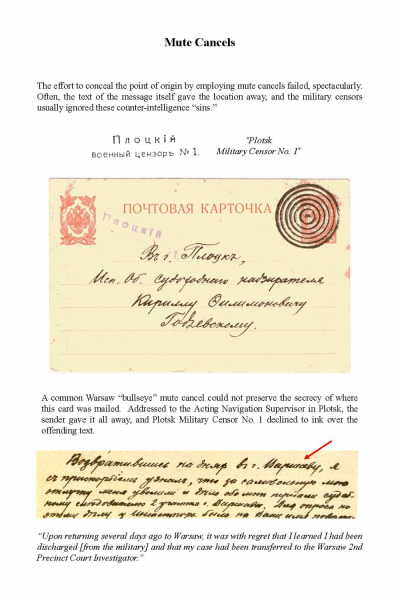 Mute Cancels
The effort to conceal the point of origin by employing mute cancels failed, spectacularly.
Often, the text of the message itself gave the location away, and the military censors
usually ignored these counter-intelligence “sins.”
Плоцкій
военный цензоръ № 1.
“Plotsk
Military Censor No. 1”
ПОЧТОВАЯ КАРТОЧКА
Плоцкій
Въ г. Плоцкъ,
Исп. Об. судоходнаго надзирателя
Кириллу Филимоновичу
A common Warsaw “bullseye” mute cancel could not preserve the secrecy of where
this card was mailed. Addressed to the Acting Navigation Supervisor in Plotsk, the
sender gave it all away, and Plotsk Military Censor No. 1 declined to ink over the
offending text.
Возвратившись на дняхъ въ г. Варшаву, я
съ прискорбіемъ узналъ, что за
меня уволили и дѣло обо мнѣ передали
2 участка г. Варшавы. Для
“Upon returning several days ago to Warsaw, it was with regret that I learned I had been
discharged [from the military] and that my case had been transferred to the Warsaw 2nd
Precinct Court Investigator.”